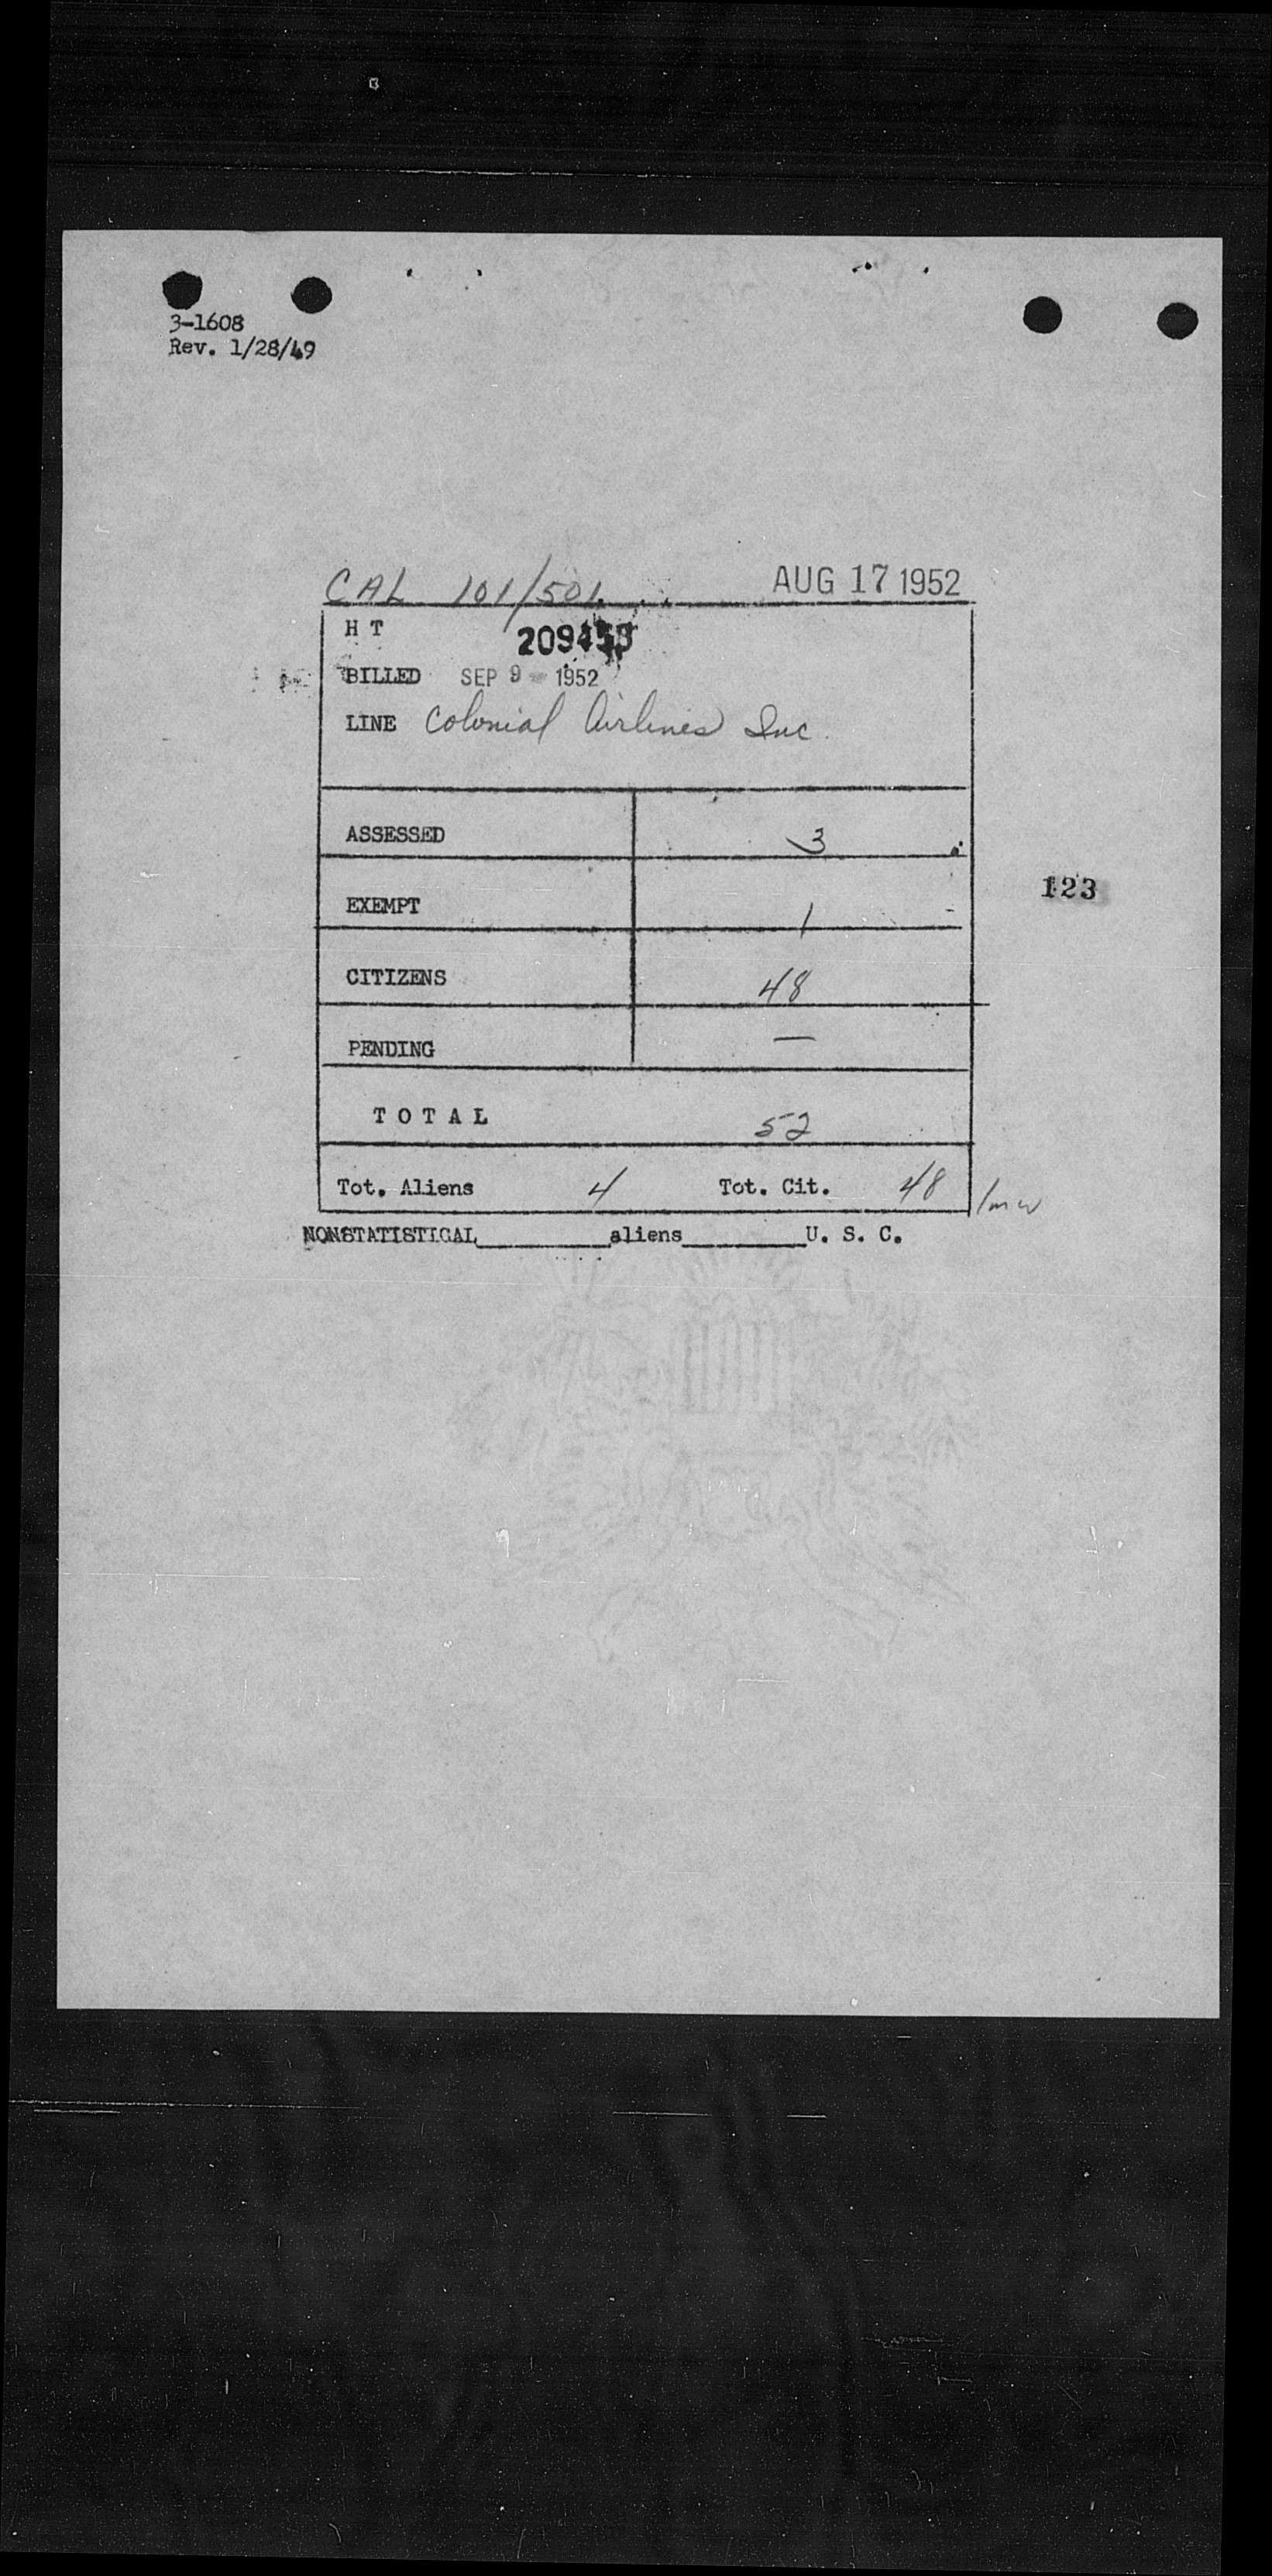 3-1608
Rev. 1/28/49
CAL 101/501 AUG 17 1952
H T
BILLED SEP 9 1952
LINE Colonial Airlines Inc.
ASSESSED 3
123
EXEMPT 1
CITIZENS 48
PENDING —
TOTAL 52
Tot. Aliens 4 Tot. Cit. 48 /mw
NONSTATISTICAL________aliens________U. S. C.